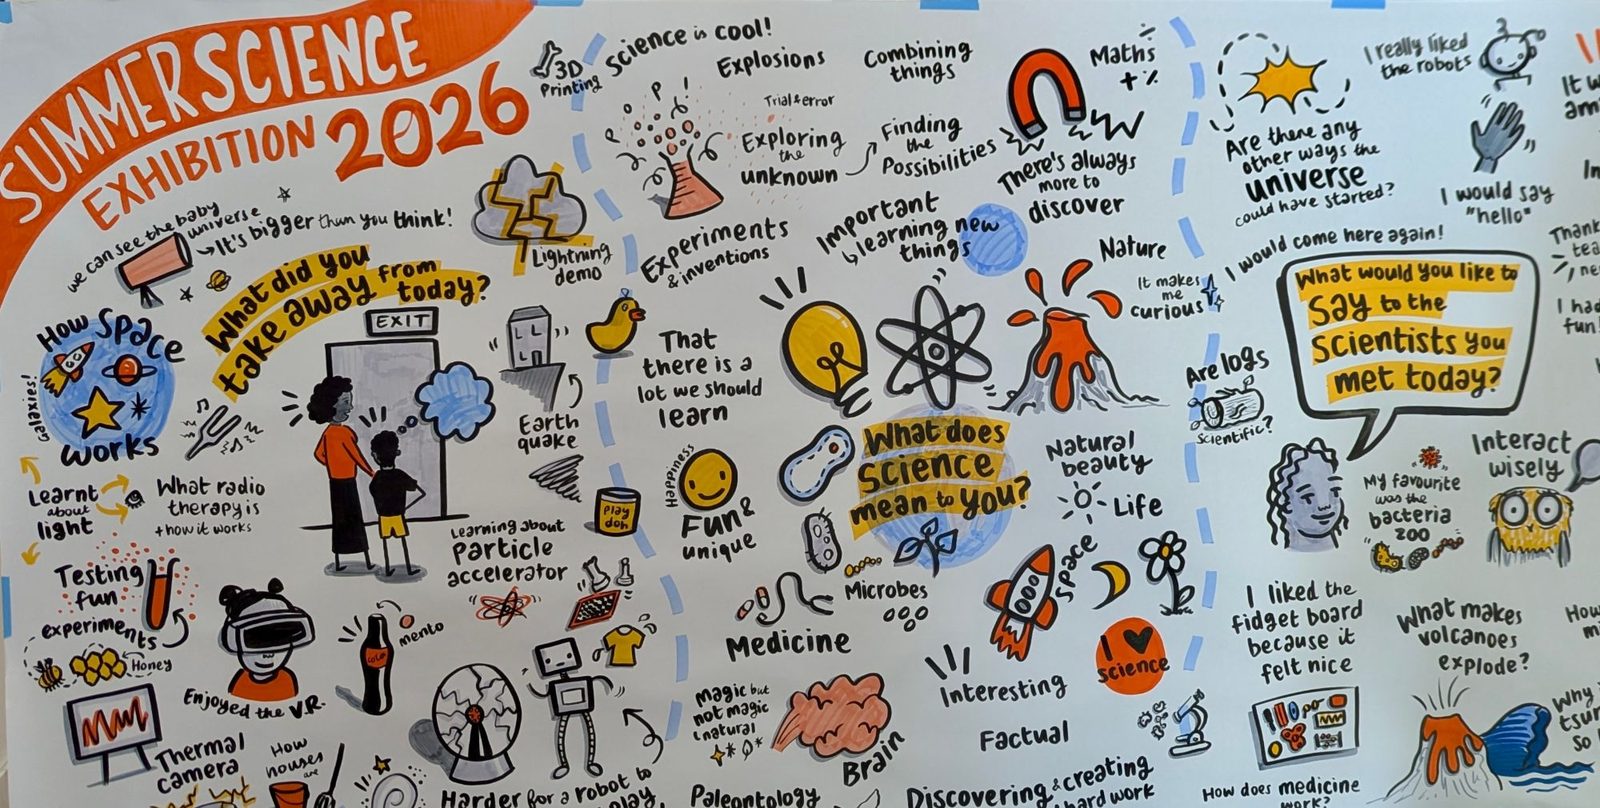 SUMMER SCIENCE
EXHIBITION 2026
3D
Printing
we can see the baby
universe
It's bigger than you think!
What did you
take away from
today?
Lightning
demo
EXIT
How Space
works
Galaxies!
Learnt
about
light
What radio
therapy is
+ how it works
Earth
quake
Play
doh
Learning about
particle
accelerator
Testing
fun
experiments
Honey
Enjoyed the V.R.
mento
cola
Thermal
camera
How
houses
are
Harder for a robot to
play
Science is cool!
Explosions
Combining
things
Maths
+ ÷ %
POP!
Trial & error
Exploring
the
unknown
Finding
the
Possibilities
There's always
more to
discover
Experiments
& inventions
Important
learning new
things
Nature
It makes
me
curious
That
there is a
lot we should
learn
What does
science
mean to you?
Happiness
Fun &
unique
Natural
beauty
Life
Space
Microbes
Medicine
I ♥
science
Interesting
Magic but
not magic
natural
Brain
Factual
Paleontology
Discovering & creating
hard work
Are there any
other ways the
universe
could have started?
I really liked
the robots
I would say
"hello"
I would come here again!
What would you like to
say to the
scientists you
met today?
Are logs
scientific?
My favourite
was the
bacteria
zoo
Interact
wisely
I liked the
fidget board
because it
felt nice
What makes
volcanoes
explode?
How does medicine
work?
It w
am
In
Thank
tea
ne
I had
fun!
How
m
Why
tsu
So